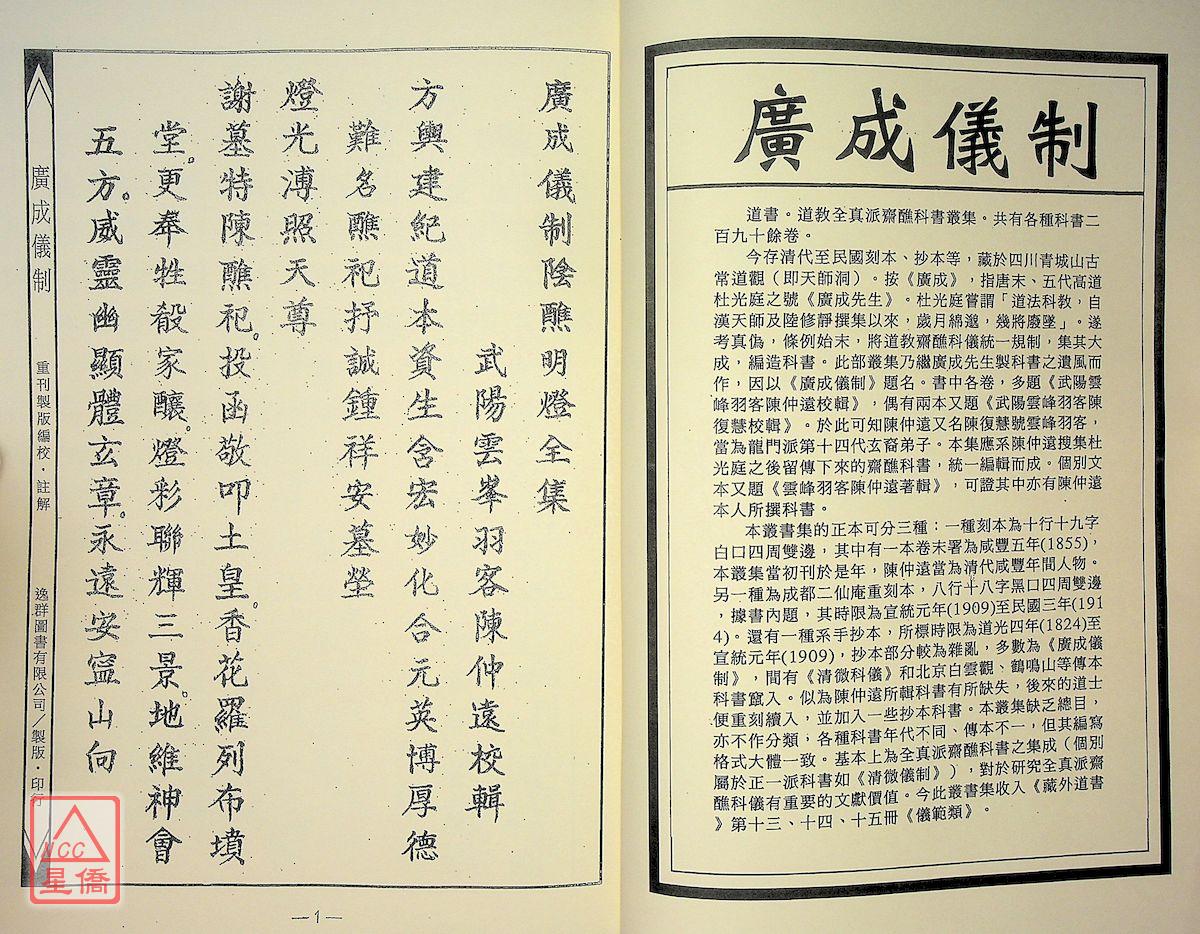 廣成儀制
道書。道教全真派齋醮科書叢集。共有各種科書二
百九十餘卷。
今存清代至民國刻本、抄本等，藏於四川青城山古
常道觀（即天師洞）。按《廣成》，指唐末、五代高道
杜光庭之號《廣成先生》。杜光庭嘗謂「道法科教，自
漢天師及陸修靜撰集以來，歲月綿邈，幾將廢墜」。遂
考真偽，條例始末，將道教齋醮科儀統一規制，集其大
成，編造科書。此部叢集乃繼廣成先生製科書之遺風而
作，因以《廣成儀制》題名。書中各卷，多題《武陽雲
峰羽客陳仲遠校輯》，偶有兩本又題《武陽雲峰羽客陳
復慧校輯》。於此可知陳仲遠又名陳復慧號雲峰羽客，
當為龍門派第十四代玄裔弟子。本集應系陳仲遠搜集杜
光庭之後留傳下來的齋醮科書，統一編輯而成。個別文
本又題《雲峰羽客陳仲遠著輯》，可證其中亦有陳仲遠
本人所撰科書。
本叢書集的正本可分三種：一種刻本為十行十九字
白口四周雙邊，其中有一本卷末署為咸豐五年(1855)，
本叢集當初刊於是年，陳仲遠當為清代咸豐年間人物。
另一種為成都二仙庵重刻本，八行十八字黑口四周雙邊
，據書內題，其時限為宣統元年(1909)至民國三年(191
4)。還有一種系手抄本，所標時限為道光四年(1824)至
宣統元年(1909)，抄本部分較為雜亂，多數為《廣成儀
制》，間有《清微科儀》和北京白雲觀、鶴鳴山等傳本
科書竄入。似為陳仲遠所輯科書有所缺失，後來的道士
便重刻續入，並加入一些抄本科書。本叢集缺乏總目，
亦不作分類，各種科書年代不同、傳本不一，但其編寫
格式大體一致。基本上為全真派齋醮科書之集成（個別
屬於正一派科書如《清微儀制》），對於研究全真派齋
醮科儀有重要的文獻價值。今此叢書集收入《藏外道書
》第十三、十四、十五冊《儀範類》。
廣成儀制陰醮明燈全集
武陽雲峯羽客陳仲遠校輯
方輿建紀道本資生含宏妙化合元英博厚德
難名醮祀抒誠鍾祥安墓塋
燈光溥照天尊
謝墓特陳醮祀。投函敬叩土皇。香花羅列布墳
堂。更奉牲殽家釀。燈彩聯輝三景。地維神會
五方。威靈幽顯體玄章。永遠安寍山向
廣成儀制
重刊製版編校．註解
逸群圖書有限公司／製版．印行
—1—
NCC
星僑